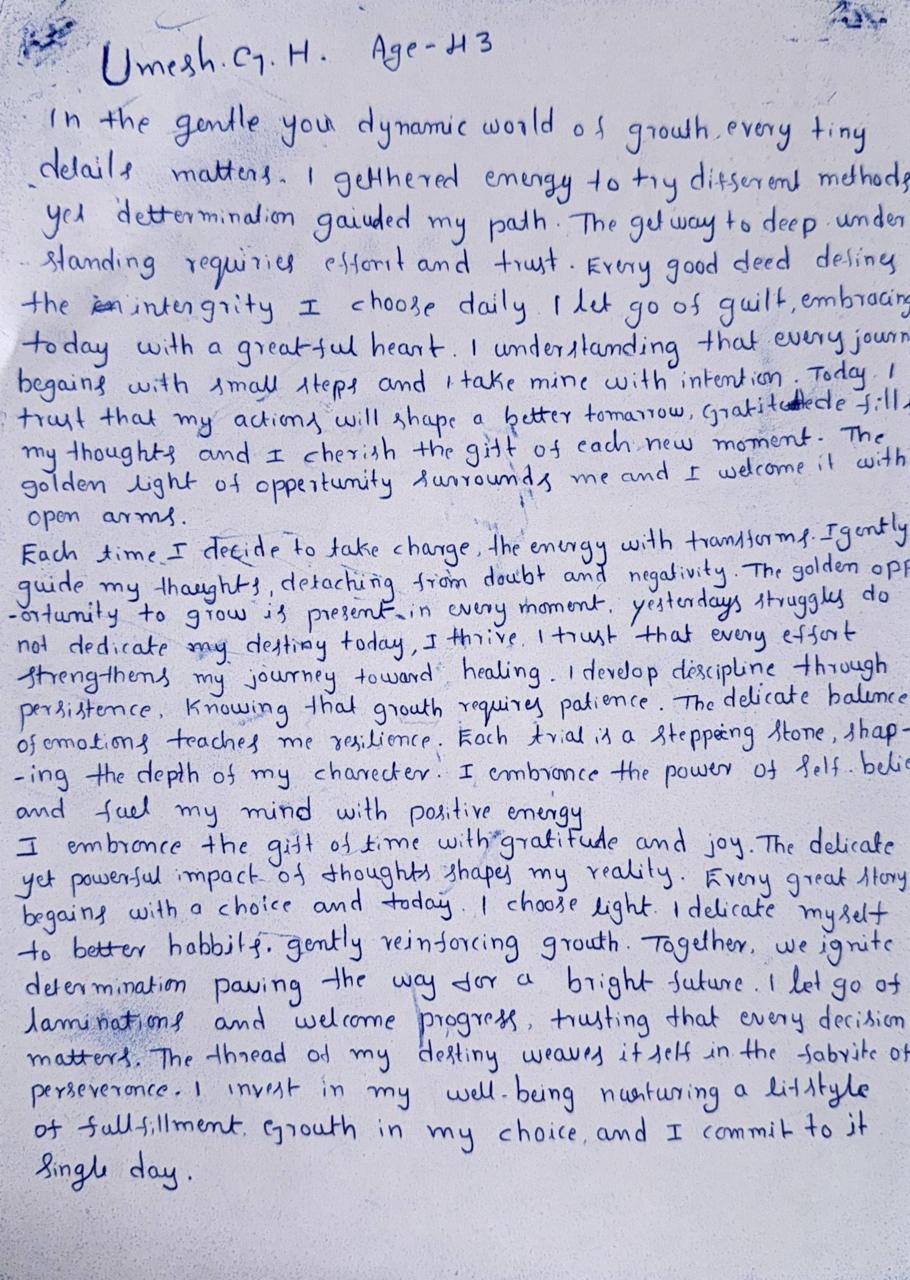 Umesh. G. H. Age-43
In the gentle you dynamic world of growth, every tiny
details matters. I getthered energy to try different methods
yet dettermination gaiuded my path. The get way to deep under
standing requiries efforit and trust. Every good deed defines
the intergrity I choose daily. I let go of guilt, embracing
today with a great-ful heart. I understanding that every journ
begains with small steps and I take mine with intention. Today I
trust that my actions will shape a better tomarrow, Gratitudede fills
my thoughts and I cherish the gift of each new moment. The
golden light of oppertunity surrounds me and I welcome it with
open arms.
Each time I decide to take charge, the energy with transforms. I gently
guide my thaughts, detaching from doubt and negativity. The golden opp
-ortunity to grow is present in every moment, yesterdays struggles do
not dedicate my destiny today, I thrive. I trust that every effort
strengthens my journey toward healing. I develop discipline through
persistence, Knowing that growth requires patience. The delicate balence
of emotions teaches me resilience. Each trial is a stepping stone, shap-
-ing the depth of my charecter. I embronce the power of self-belie
and fuel my mind with positive energy
I embronce the gift of time with gratitude and joy. The delicate
yet powerful impact of thoughts shapes my reality. Every great story
begains with a choice and today. I choose light. I delicate myself
to better habbits. gently reinforcing growth. Together, we ignite
determination paving the way for a bright future. I let go of
laminations and welcome progress, trusting that every decision
matters. The thread of my destiny weaves it self in the fabrite of
perseverance. I invest in my well-being nurturing a lifstyle
of fullfillment. Growth in my choice, and I commit to it
Single day.